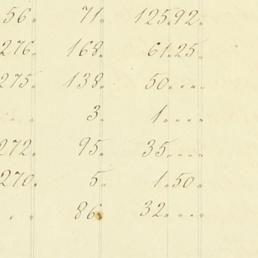 56. 71. 125.92.
276. 168. 61.25.
275. 138. 50....
3. 1....
272. 95. 35....
270. 5. 1.50.
. . 86. 32....